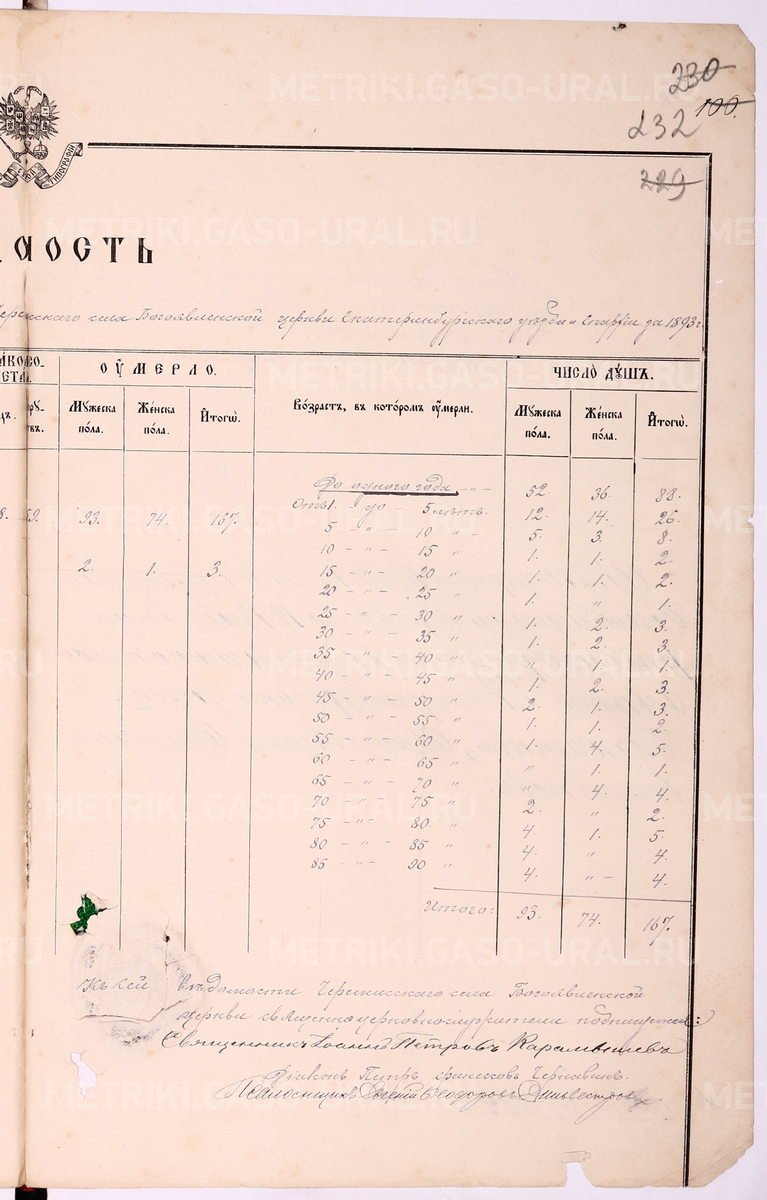 230
100.
232
229
ТИПОГРАФІИ
ОСТЬ
села Богоявленской церкви Екатеринбургскаго уѣзда и Епархіи за 1893 г.
ОУМЕРЛО.
ЧИСЛО ДУШЪ.
Мужеска пола. Женска пола. Итогѡ.
Возрастъ, въ которомъ оумерли.
Мужеска пола. Женска пола. Итогѡ.
До одного года - " - 52. 36. 88.
Отъ 1. - до 5 лѣтъ. 12. 14. 26.
59. 93. 74. 167.
5 - " - 10 " - 5. 3. 8.
10 - " - 15 " 1. 1. 2.
2. 1. 3.
15 - " - 20 " 1. 1. 2.
20 - " - 25 " 1. " 1.
25 - " - 30 " 1. 2. 3.
30 - " - 35 " 1. 2. 3
35 - " - 40 " " 1. 1.
40 - " - 45 " 1. 2. 3.
45 - " - 50 " 2. 1. 3.
50 - " - 55 " 1. 1. 2.
55 - " - 60 " 1. 4. 5.
60 - " - 65 " " 1. 1.
65 - " - 70 " " 4. 4.
70 - " - 75 " 2. " 2.
75 - " - 80. " 4. 1. 5.
80 - " - 85 " 4. " 4.
85 - " - 90 " 4. " - 4.
Итого: 93. 74. 167.
Къ сей вѣдомости Черемисскаго села Богоявленской
церкви священноцерковнослужители подписуемся:
Священникъ Іоаннъ Петровъ Карамышевъ
Діаконъ Петръ
Псаломщикъ Евгеній Ѳеодоровъ Сильвестровъ
METRIKI.GASO-URAL.RU